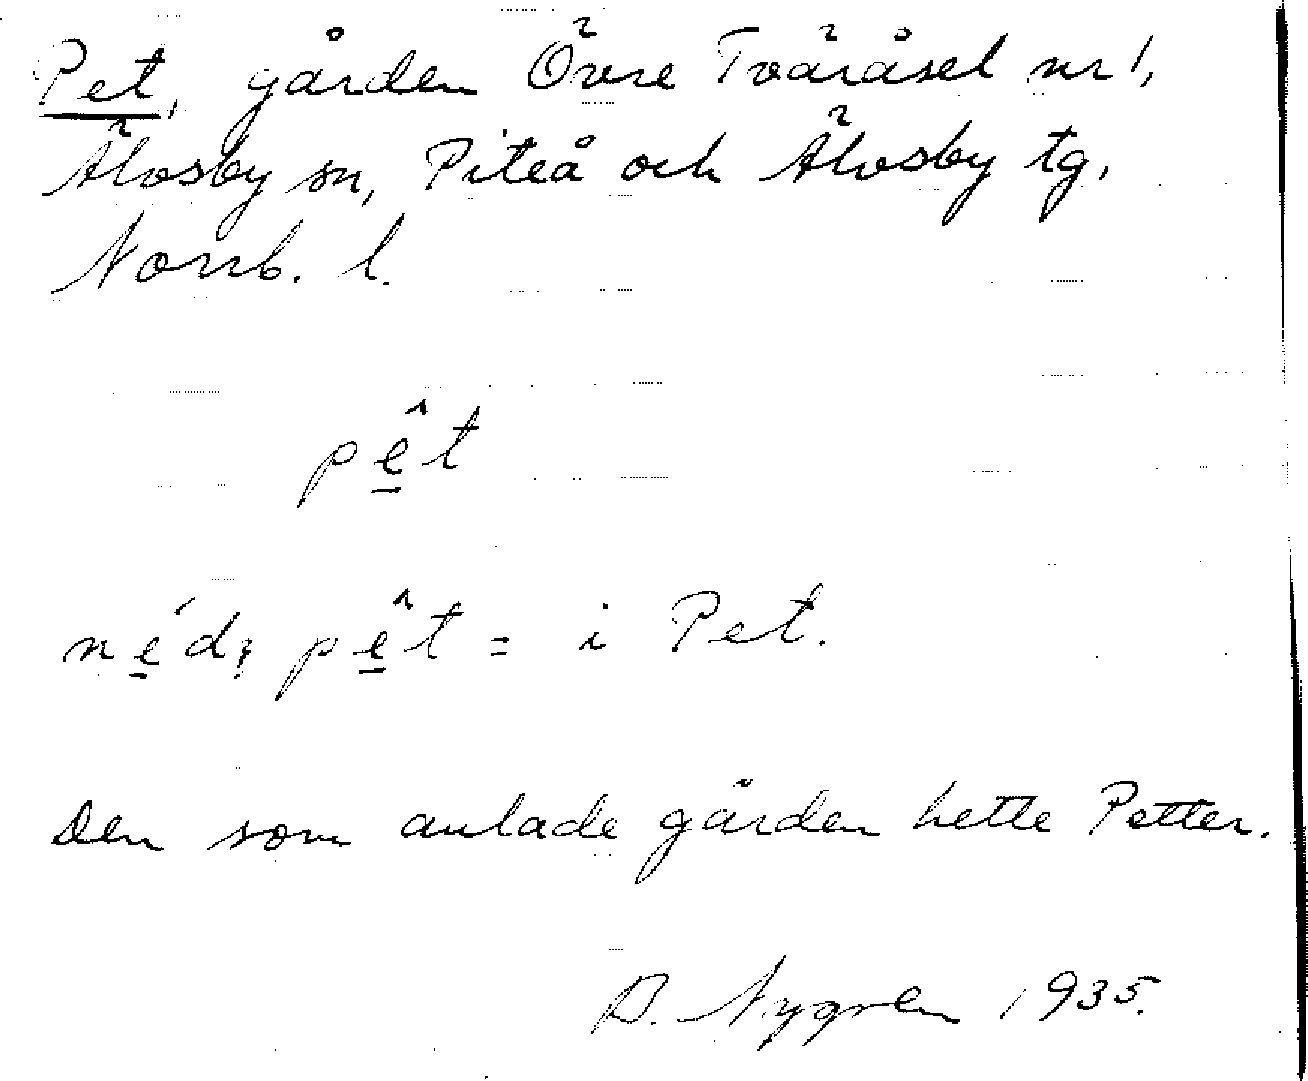 Pet, gården Övre Tväråsel nr 1,
Älvsby sn, Piteå och Älvsby tg,
Norrb. l.
pê̲t
né̲dı̥ pê̲t = i Pet.
Den som anlade gården hette Petter.
B. Nygren 1935.